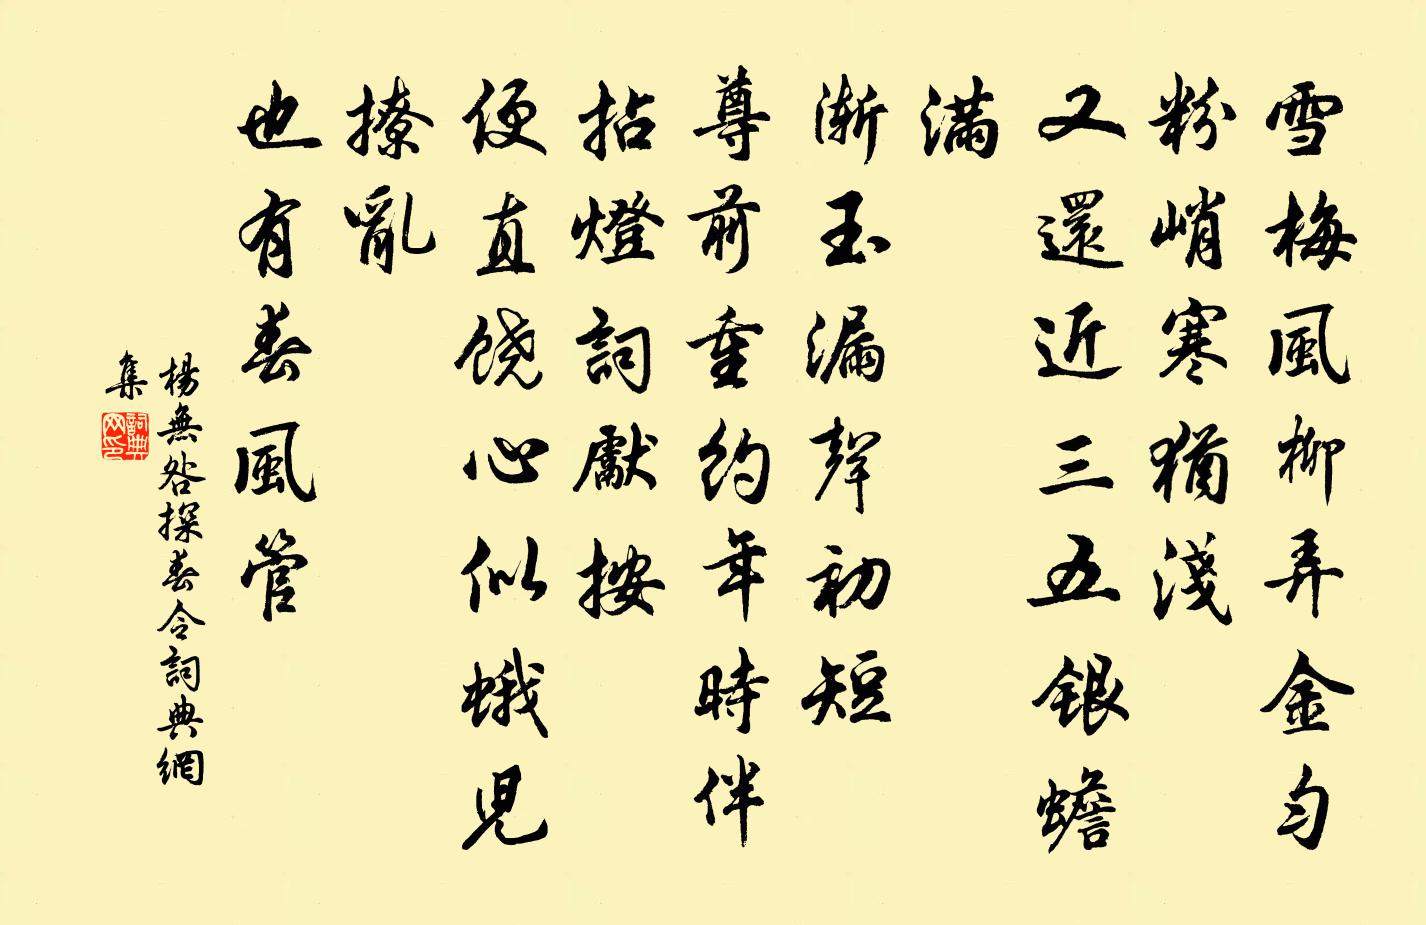 雪梅風柳弄金勻
粉峭寒猶淺
又還近三五銀蟾
滿
漸玉漏聲初短
尊前重約年時伴
拈燈詞獻按
便直饒心似蛾兒
撩亂
也有春風管
楊無咎探春令詞典網
集
詞典網印